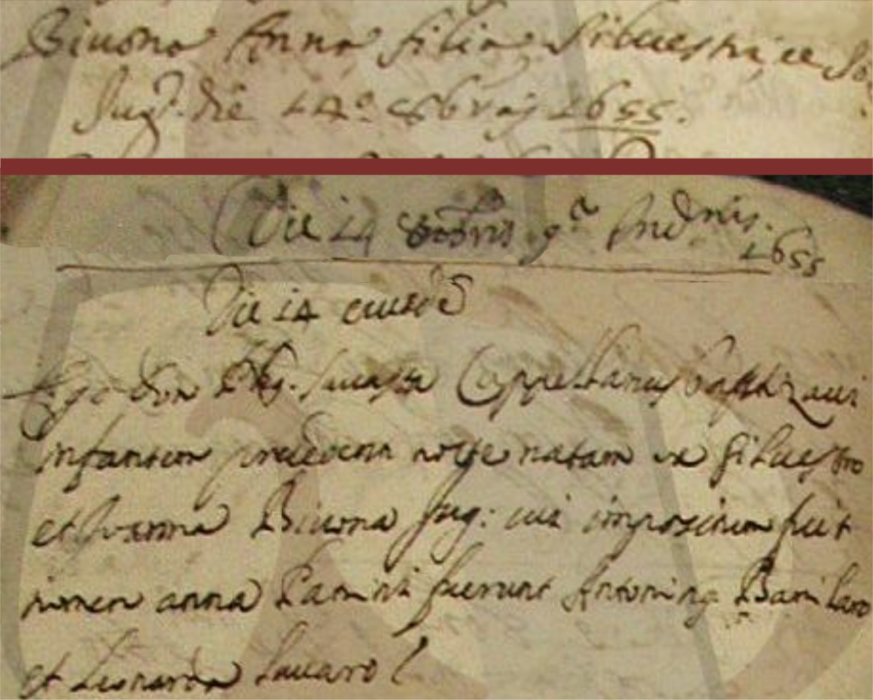 Biuona Anna filia Siluestri, et Jo.
Jug. die 14º 8bris 1655.
Die 14 8bris 9ª Indnis.
1655
Die 14 eiusdē
Ego Don Cappellanus baptizaui
infantem precedenti nocte natam ex Siluestro
et Joanna Biuona Jug: cui impositum fuit
nomen anna Patrini fuerunt Antoninus Barilaro
et Leonarda Lauaro